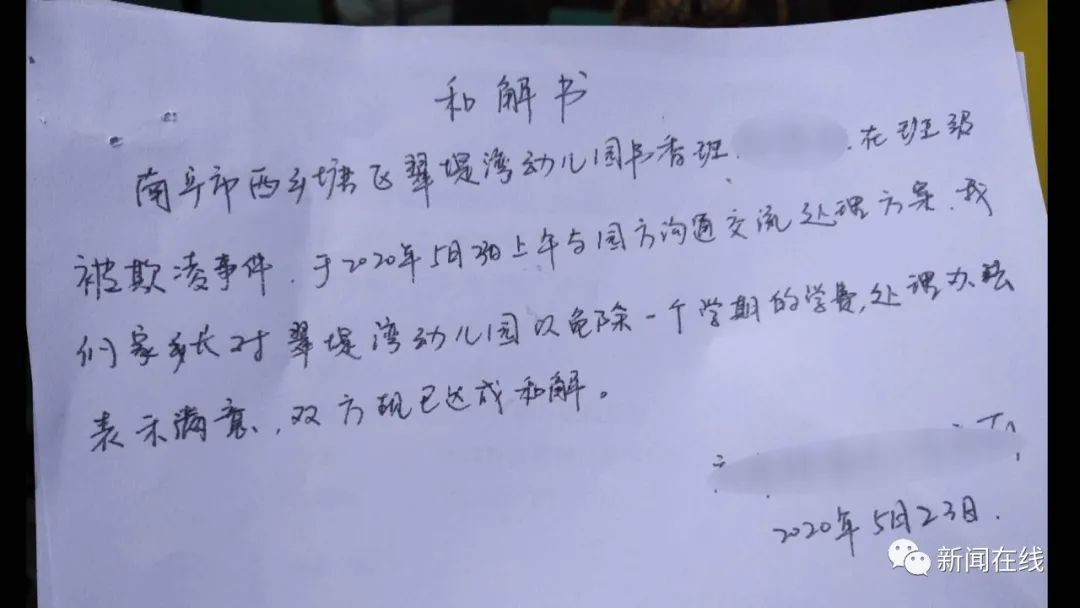 和解书
南宁市西乡塘区翠堤湾幼儿园书香班 在班级
被欺凌事件.于2020年5月23日上午与园方沟通交流处理方案.我
们家乡长对翠堤湾幼儿园以免除一个学期的学费,处理办法
表示满意,双方现已达成和解。
2020年5月23日.
新闻在线